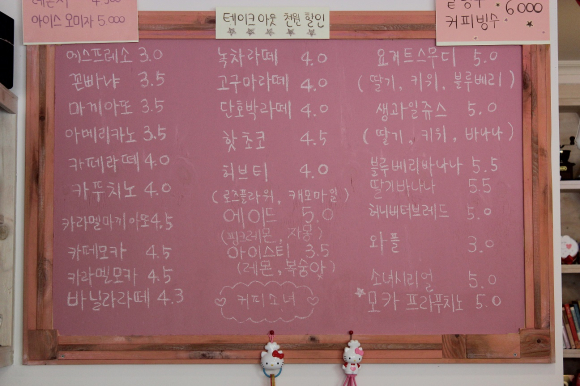 4,500
아이스 오미자 5,000
테이크아웃 천원 할인
6,000
커피빙수
에스프레소 3.0
꼰빠냐 3.5
마끼아또 3.5
아메리카노 3.5
카페라떼 4.0
카푸치노 4.0
카라멜마키아또 4.5
카페모카 4.5
카라멜모카 4.5
바닐라라떼 4.3
녹차라떼 4.0
고구마라떼 4.0
단호박라떼 4.0
핫초코 4.5
허브티 4.0
(로즈플라워, 캐모마일)
에이드 5.0
(핑크레몬, 자몽)
아이스티 3.5
(레몬, 복숭아)
커피소녀
요거트스무디 5.0
(딸기, 키위, 블루베리)
생과일쥬스 5.0
(딸기, 키위, 바나나)
블루베리바나나 5.5
딸기바나나 5.5
허니버터브레드 5.0
와플 3.0
소녀시리얼 5.0
모카 프라푸치노 5.0